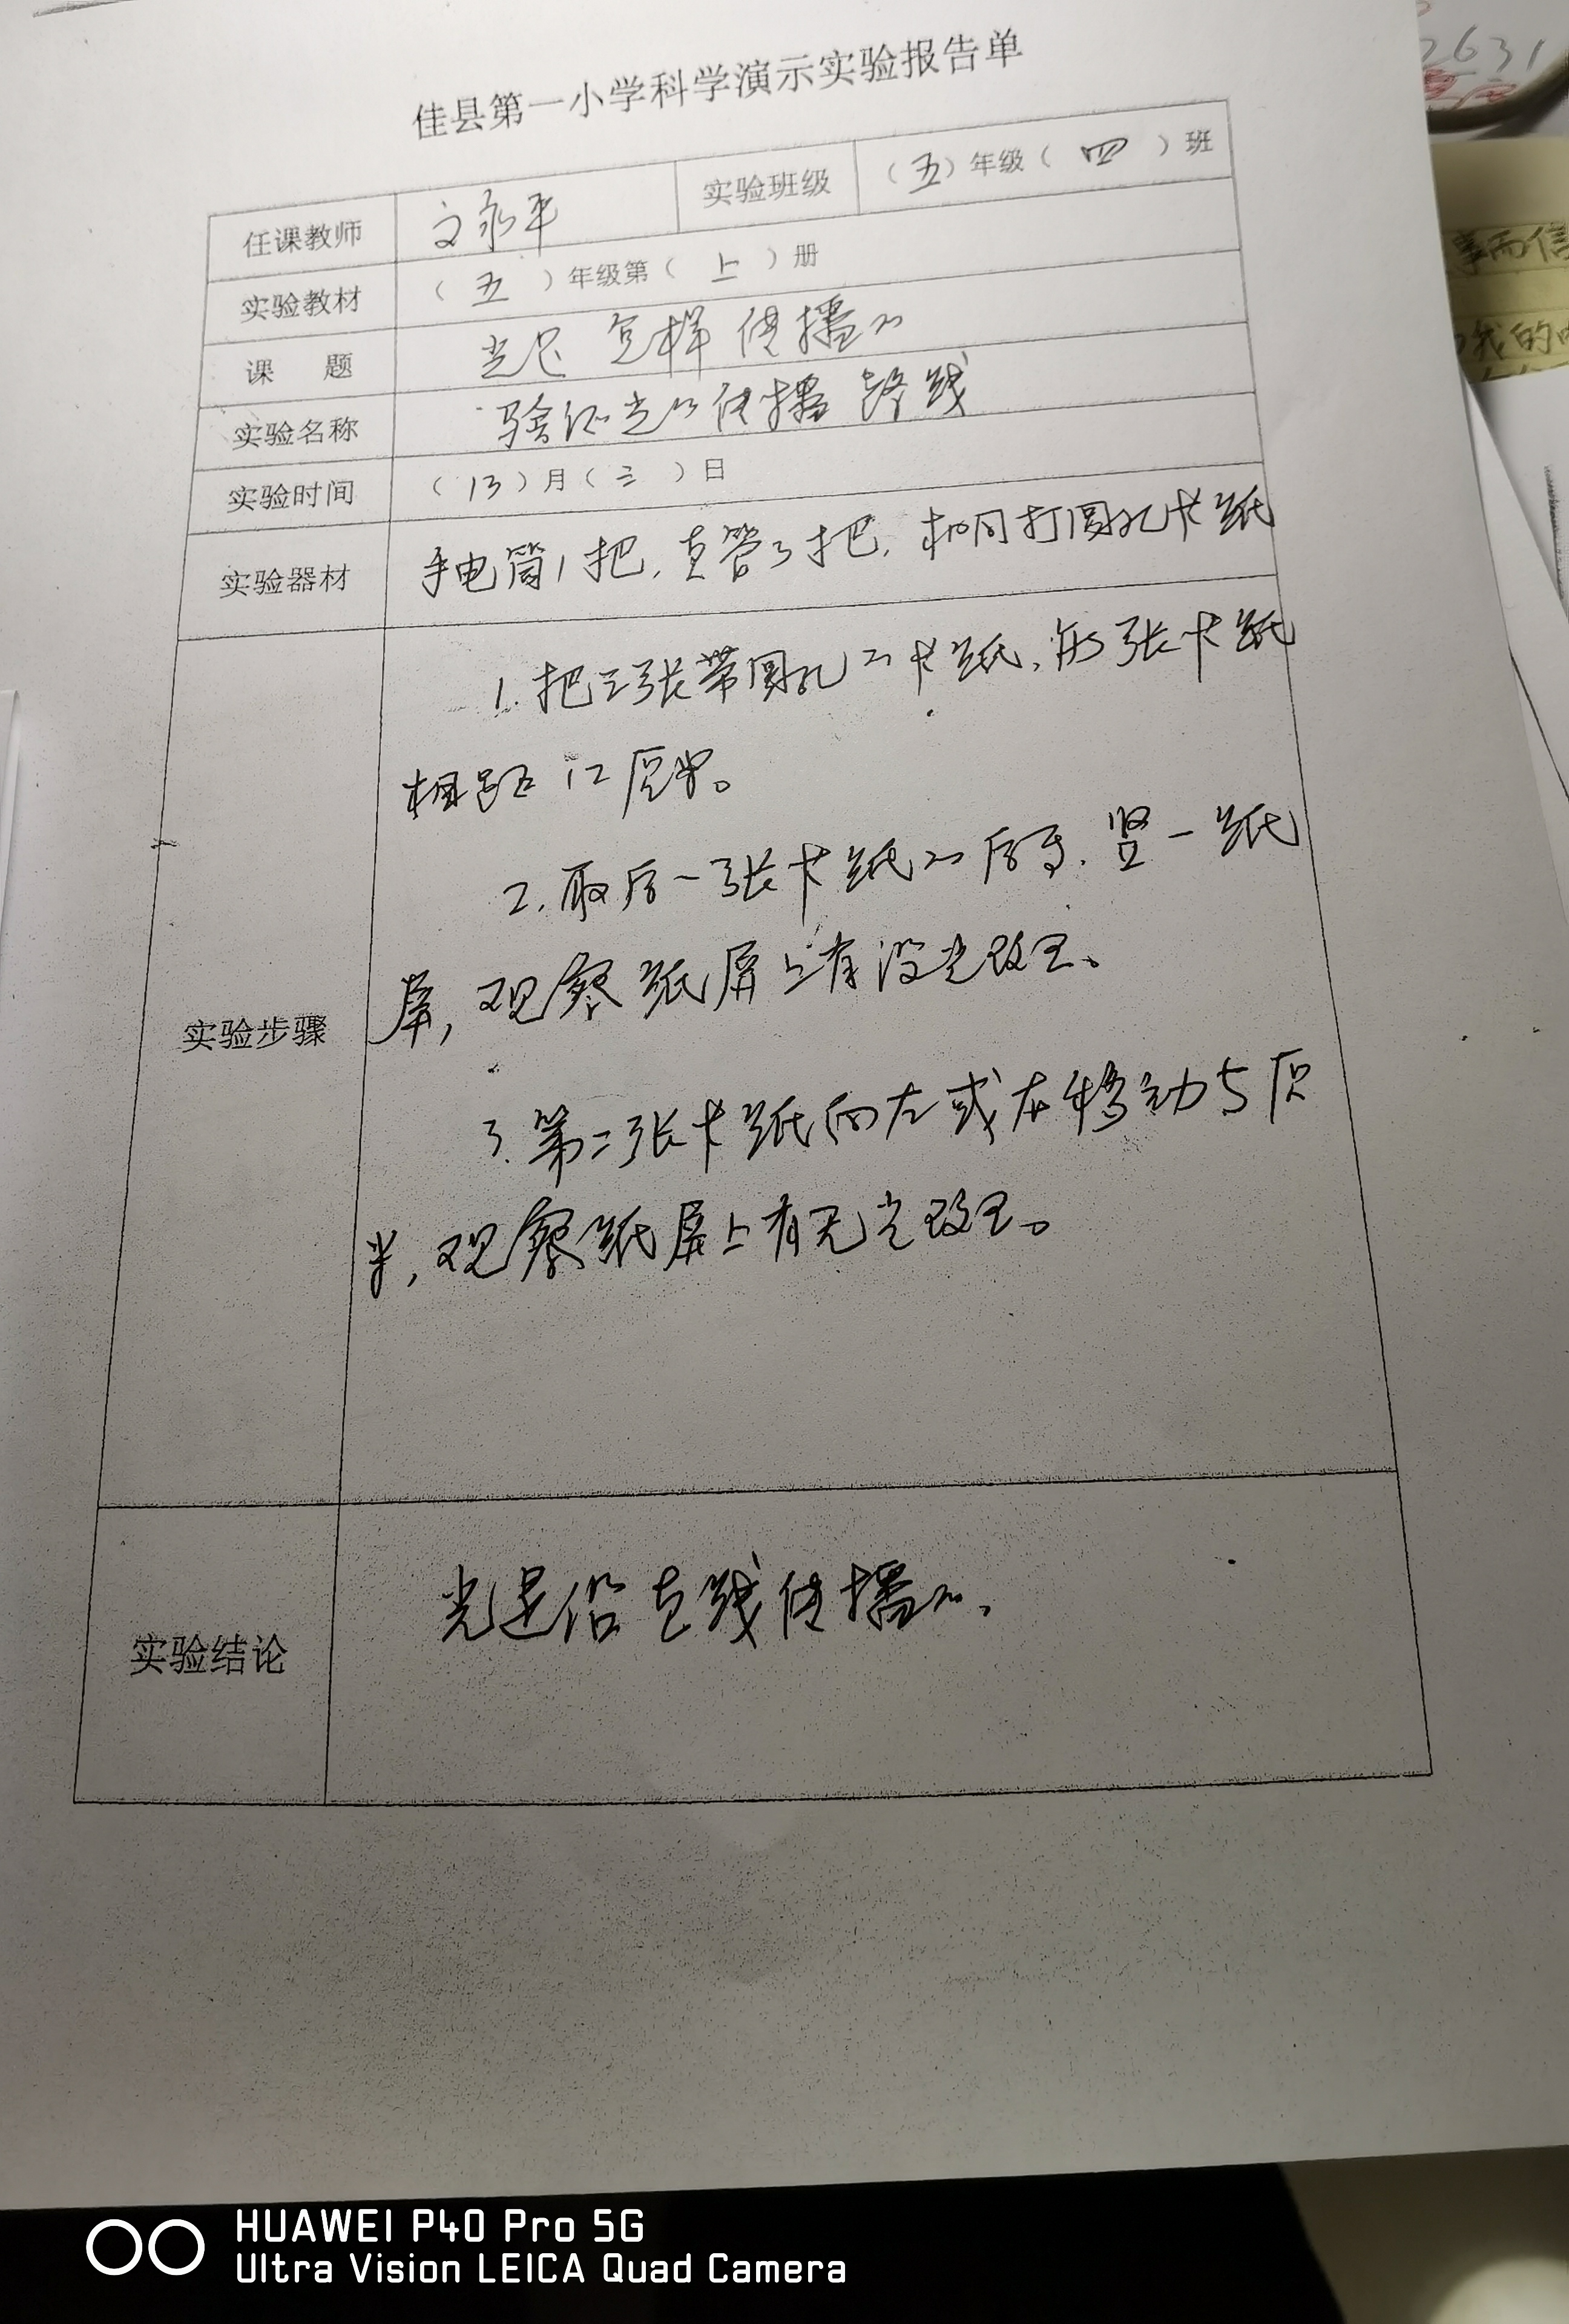 佳县第一小学科学演示实验报告单
任课教师 文永平 实验班级 （五）年级（四）班
实验教材 （五）年级第（上）册
课 题 光是怎样传播的
实验名称 验证光的传播路线
实验时间 （13）月（三）日
实验器材 手电筒1把,直管3把,相同打圆孔卡纸
1.把三张带圆孔的卡纸,每张卡纸
相距12厘米。
2.最后一张卡纸的后,竖一纸
实验步骤
屏,观察纸屏上有没光斑
3.第二张卡纸向左或右移动5厘
米,观察纸屏上有无光斑
实验结论 光是沿直线传播的,
2631
事而信
我的
HUAWEI P40 Pro 5G
Ultra Vision LEICA Quad Camera